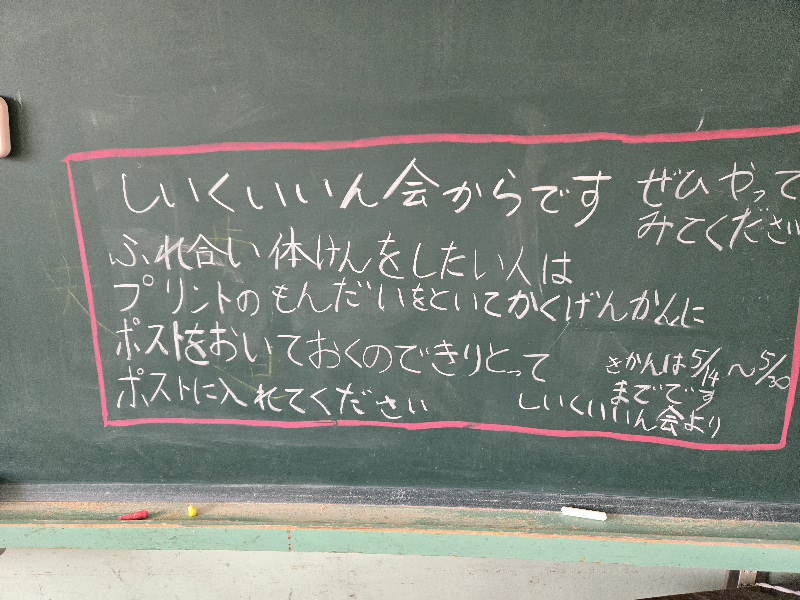 しいくいいん会からです
ぜひやって
みてください
ふれ合い体けんをしたい人は
プリントのもんだいをといてかくげんかんに
ポストをおいておくのできりとって
ポストに入れてください
きかんは5/14～5/30
までです
しいくいいん会より